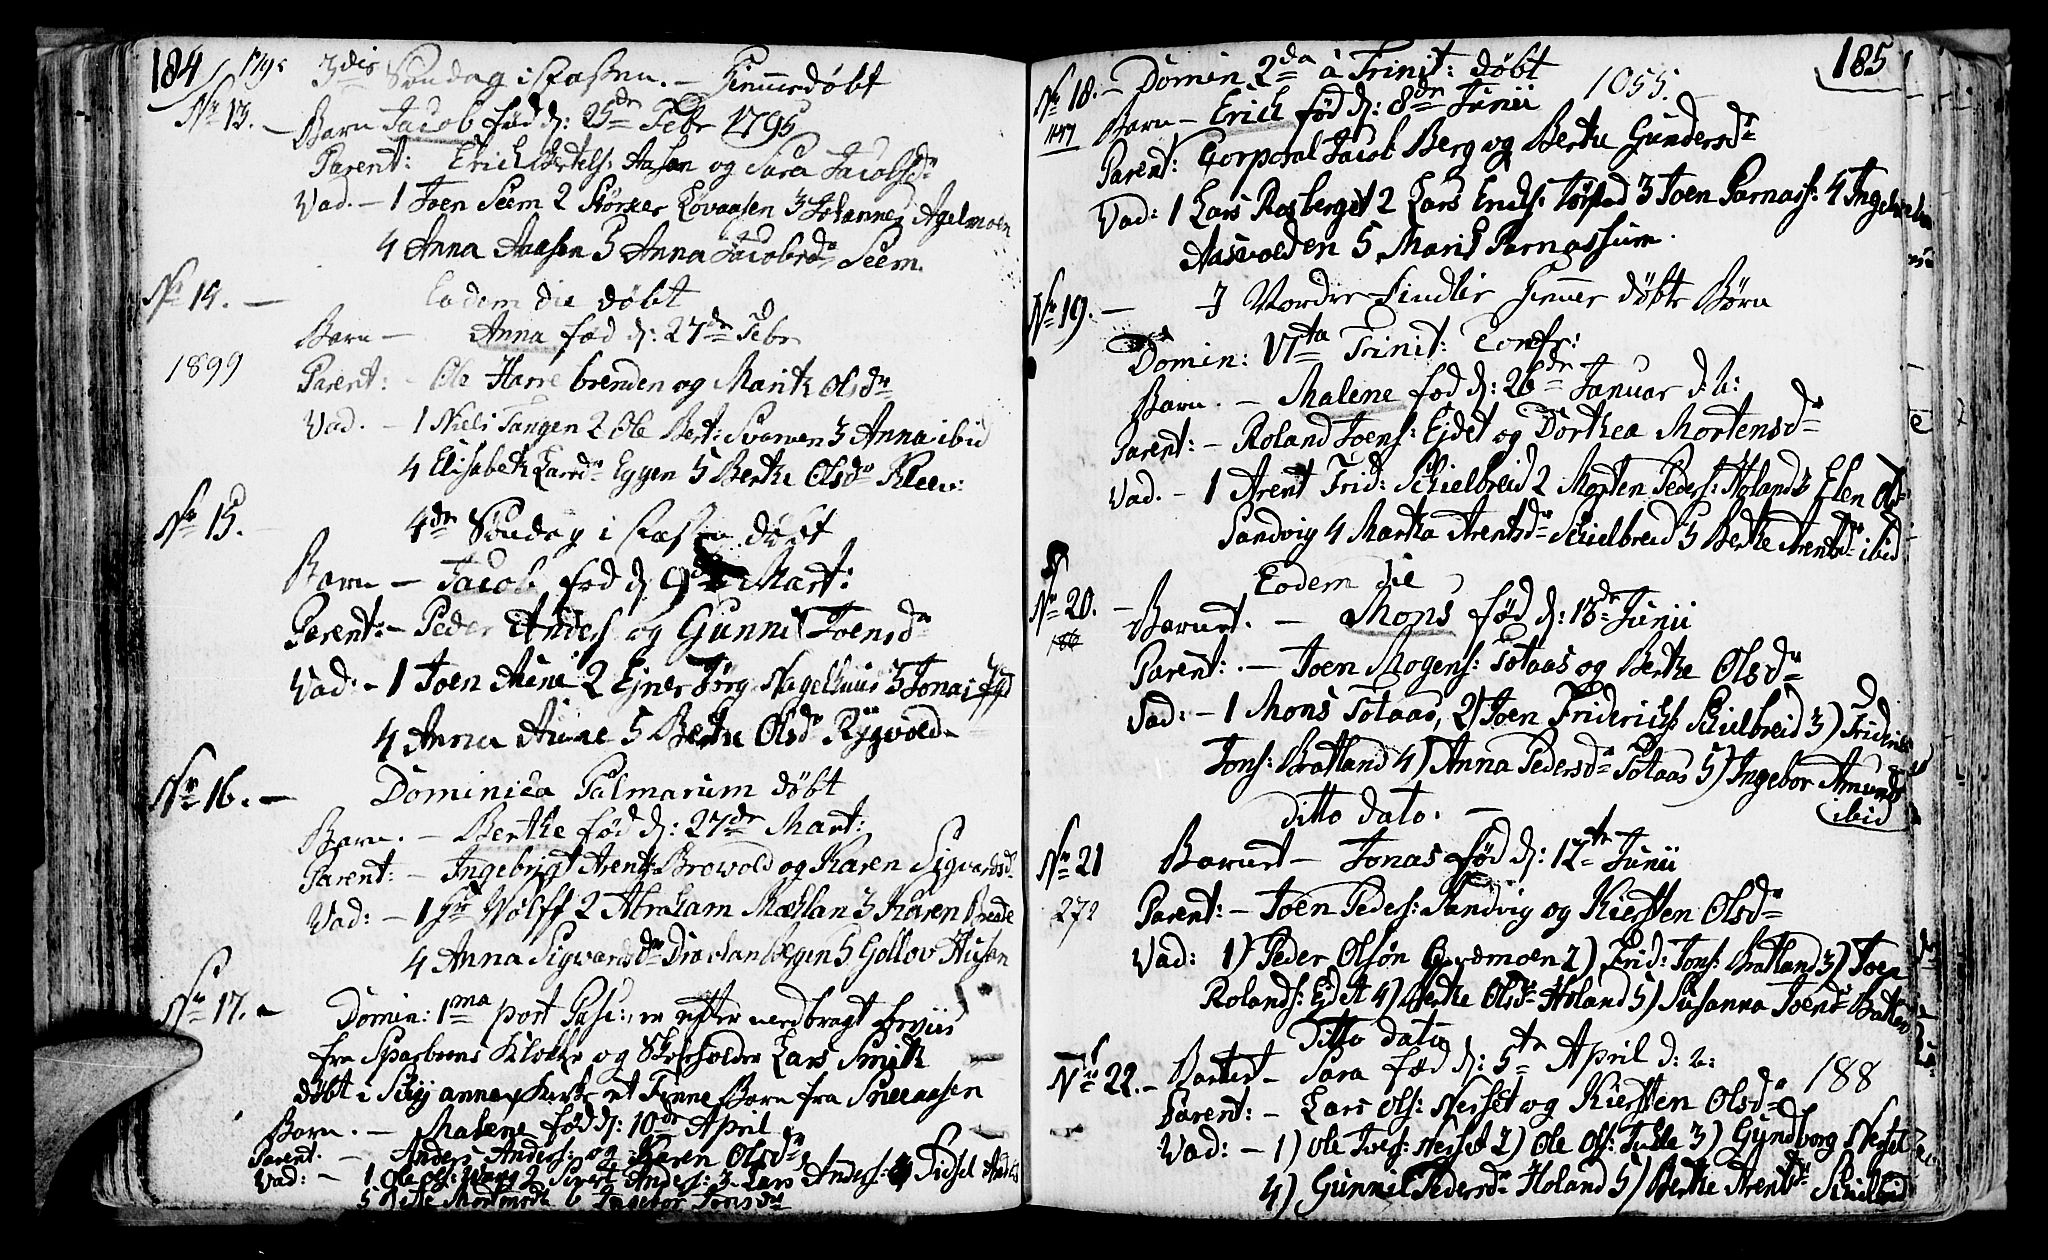 184 / 1795 3die Søndag i Fasten. – Hiemmedøbt
No 13. – Barn Jacob fød d: 25de Febr 1795
Parent: Erich Bertels: Aasen og Sara Jacobsdr
Vad. – 1 Joen Seem 2 Størker Løvaasen 3 Johannes Agelmoen
4 Anna Aaasen 5 Anna Jacobsdr Seem.
No 14. – Eodem die døbt
Barn – Anna fød d: 27de Febr
1899
Parent: – Ole Harrebrenden og Marith Olsdr
Vad. – 1 Niels Tangen 2 Ole Bert: Svarven 3 Anna ibid
4 Elisabeth Larsdr Eggen 5 Berthe Olsdr Kleev:
No 15. – 4de Søndag i Fasten døbt
Barn – Jacob fød d 9de Mart:
Parent: – Peder Anders og Gunnil Joensdr
Vad: – 1 Joen Aune 2 Ejner Jørg: Nagelhuus 3 Jonas
4 Anna Aune 5 Berthe Olsdr Rygvold –
No 16. – Dominica Palmarum døbt
Barn. – Berthe fød d: 27de Mart:
Parent: – Ingebrigt Arents: Browold og Karen Sigvardsdr
Vad: – 1 Hr Wolff 2 Abraham Mæhlan 3 Karen Brede
4 Anna Sigvardsdr 5 Gollov Husan
No 17. – Domin: 1ma post Pasc: er efter nedbragt beviis
fra Sparbuens Klokker og Skoleholder Lars Smith
døbt i Kirke et Finne Barn fra Sneeaasen
Barn. – Malene fød d: 10de April
Parent: – Anders Anders: og Karen Olsdr
Vad: – 1 Ole Ols: 2 Sivert Anders: 3 Lars Anders: 4 Sidsel Anders
5 Berthe Mortensdr 6 Ingebor Jonsdr
185
No 18. – Domin 2da à Trinit: døbt
1055.
1147 Barn – Erich fød d: 8de Junii
Parent: Corporal Jacob Berg og Berthe Gundersdr
Vad: 1 Lars Rosberget 2 Lars Erichs: Tørstad 3 Joen Parnass: 4 Ingebor
Aasvolden 5 Marit Parnassum.
No 19. – I Vordre Findlis Hiemme døbte Børn
Domin: VIta Trinit: Confr:
Barn. – Malene fød d: 26de Januar d: A:
Parent: – Roland Joens: Ejdet og Dorthea Mortensdr
Vad. – 1 Arent Frid: Skielbreid 2 Morten Peders: Holand 3 Elen Ols
Sandvig 4 Martha Arentsdr Skielbreid 5 Berthe Arentsdr ibid
Eodem die
No 20. – Barnet. – Mons fød d: 13de Junii
186
Parent: – Joen Mogens: Totaas og Berthe Olsdr
Vad: – 1 Mons Totaas, 2) Joen Friderichs: Skielbreid 3) Friderich
Jons: Bratland 4) Anna Pedersdr Totaas 5) Ingebor Amunds
ibid
Ditto Dato. –
No 21 Barnet – Jonas fød d: 12te Junii
272 Parent: – Joen Peders: Sandvig og Kiersten Olsdr
Vad: 1) Peder Olsøn 2) Frid: Jons: Bratland 3) Joen
Rolands: Ejdet 4) Berthe Olsdr Holand 5) Susanna Joensdr
Ditto Dato
No 22. – Barnet – Sara fød d: 5te April d: A:
188
Parent: – Lars Ols: Nerset og Kiersten Olsdr
Vad: – 1) Ole Ivers: Nerset 2) Ole Ols: 3) Gundborg Nerset
4) Gunnel Pedersdr Holand 5) Berthe Arentsdr Skielbreid